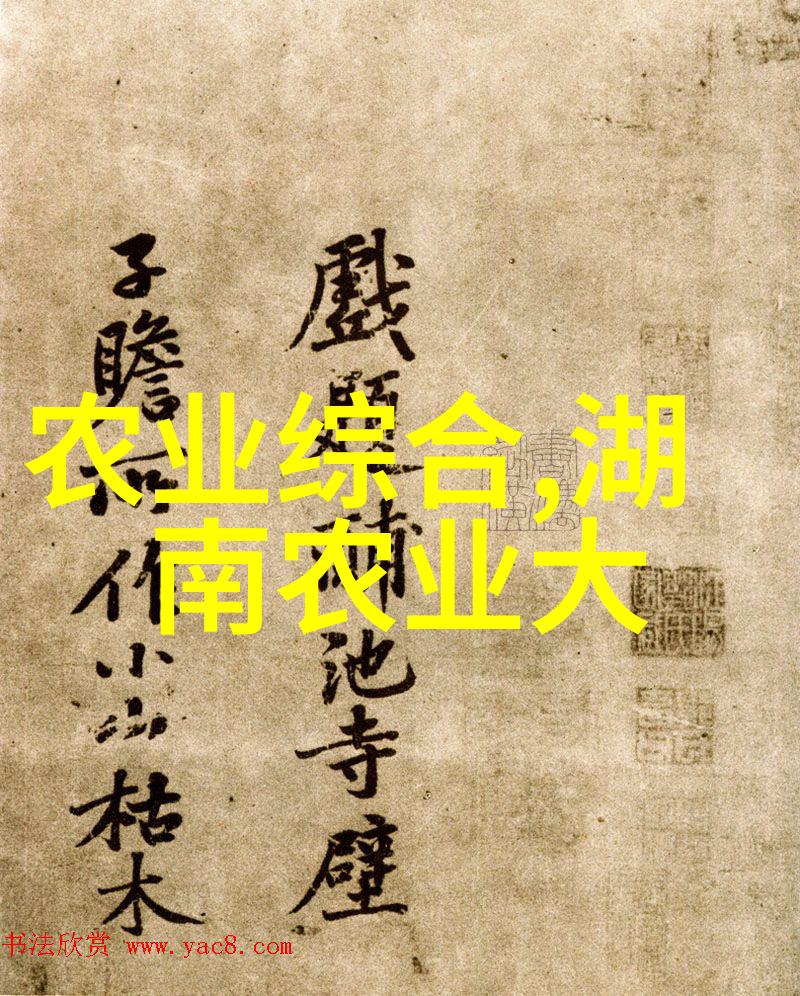 戲題䩉池寺壁
子瞻所作小山枯木
农业综合,湖
南农业大
书法欣赏 www.yac8.com